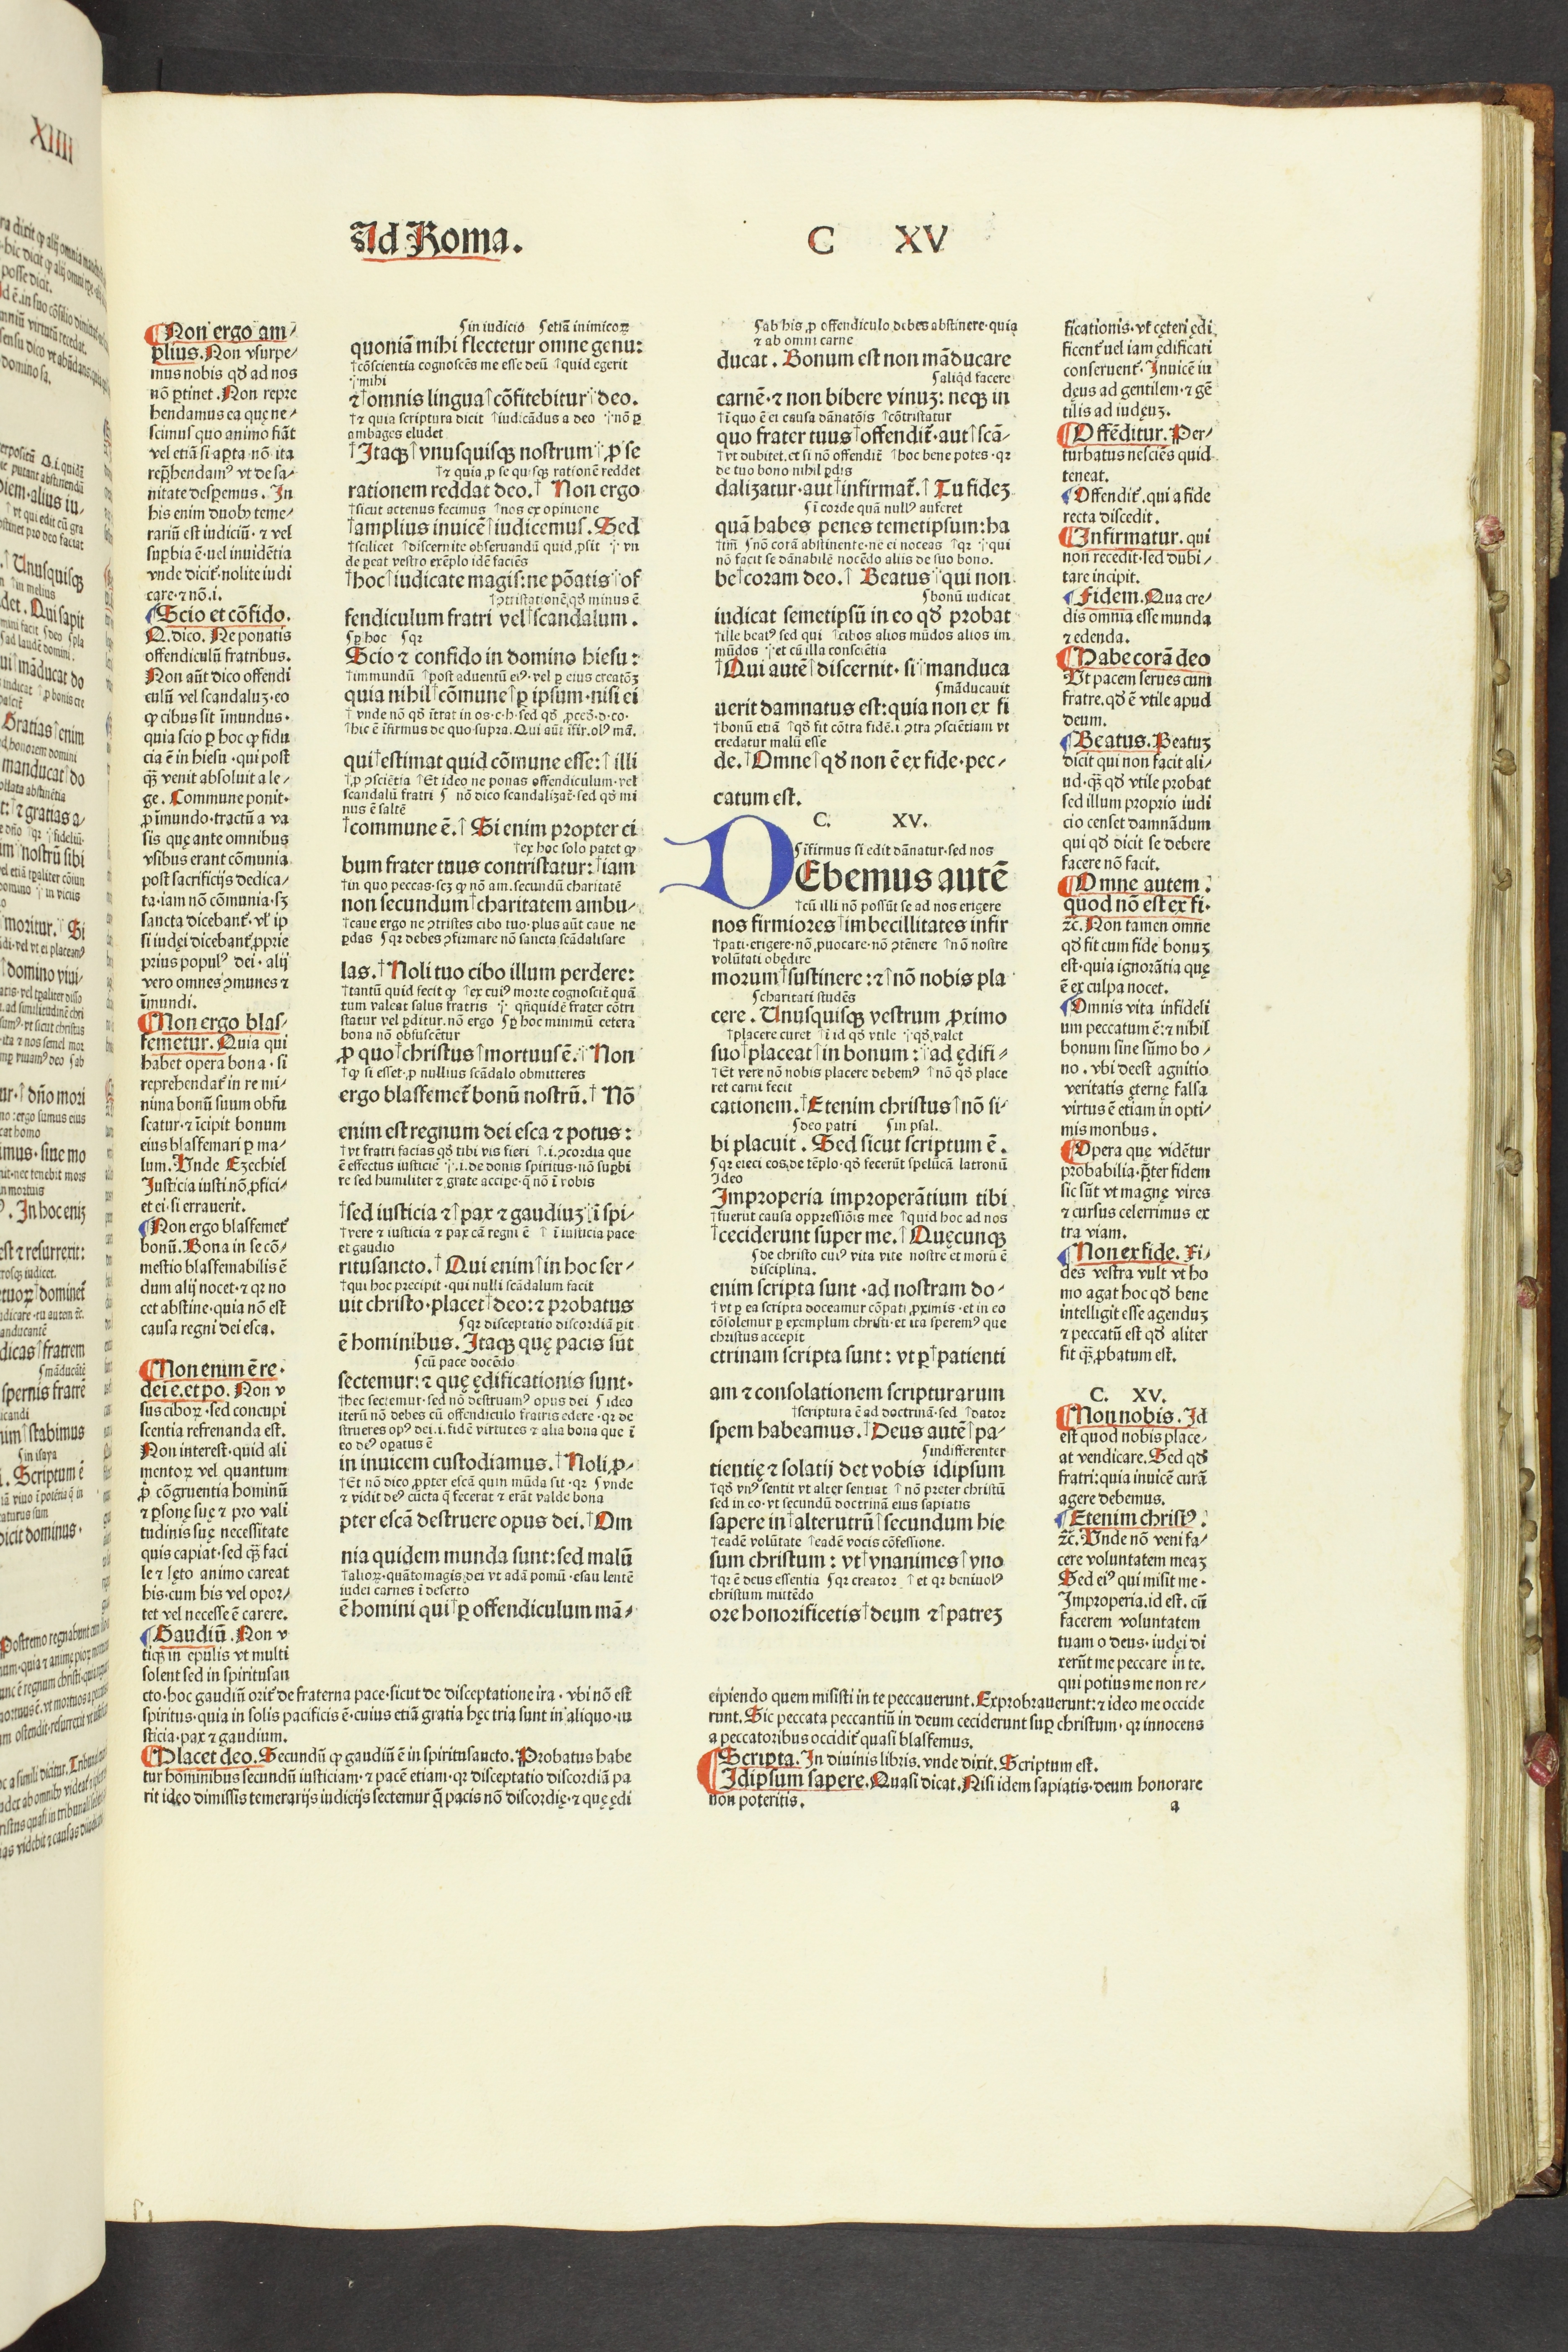 Ad Roma.
C XV
Non ergo am⸗
plius. Non vsurpe⸗
mus nobis qđ ad nos
nō ꝑtinet. Non repre
hendamus ea quę ne⸗
scimus quo animo fiāt
vel etiā si aꝑta·nō·ita
rep̄hendamꝰ vt de sa⸗
nitate desꝑemus. In
his enim duobꝰ teme⸗
rariū est iudiciū·⁊ vel
suꝑbia ē·vel inuidētia
vnde dicit᷑·nolite iudi
care·⁊ nō.i.
Scio et cōfido.
Q.dico. Ne ponatis
offendiculū fratribus.
Non aūt dico offendi
culū vel scandaluꝫ·eo
ꝙ cibus sit īmundus·
quia scio ꝑ hoc ꝙ fidu
cia ē in hiesu·qui post
qꝫ venit absoluit a le⸗
ge. Commune ponit·
ꝓ īmundo·tractū a va
sis quę ante omnibus
vsibus erant cōmunia
post sacrificijs dedica⸗
ta·iam nō cōmunia·sꝫ
sancta dicebant᷑·vl̓ ip
si iudęi dicebant᷑ ꝓprie
prius populꝰ dei·alij
vero omnes ꝯmunes ⁊
īmundi.
Non ergo blas⸗
femetur. Quia qui
habet opera bona·si
reprehendat᷑ in re mi⸗
nima bonū suum obfu
scatur·⁊ īcipit bonum
eius blasfemari ꝑ ma⸗
lum. Vnde Ezechiel
Justicia iusti nō ꝓfici⸗
et ei·si errauerit.
Non ergo blasfemet᷑
bonū. Bona in se cō⸗
mestio blasfemabilis ē
dum alij nocet·⁊ qꝛ no
cet abstine·quia nō est
causa regni dei esca.
Non enim ē re·
dei e.et po. Non v
sus ciboꝝ·sed concupi
scentia refrenanda est.
Non interest·quid ali
mentoꝝ vel quantum
ꝓ cōgruentia hominū
⁊ ꝑsonę suę ⁊ pro vali
tudinis suę necessitate
quis capiat·sed qꝫ faci
le ⁊ lęto animo careat
his·cum his vel opor⸗
tet vel necesse ē carere.
Gaudiū. Non v
tiqꝫ in epulis vt multi
solent sed in spiritusan
cto·hoc gaudiū orit᷑ de fraterna pace·sicut de disceptatione ira·vbi nō est
spiritus·quia in solis pacificis ē·cuius etiā gratia hęc tria sunt in aliquo·iu
sticia·pax ⁊ gaudium.
Placet deo. Secundū ꝙ gaudiū ē in spiritusancto. Probatus habe
tur hominibus secundū iusticiam·⁊ pacē etiam·qꝛ disceptatio discordiā pa
rit ideo dimissis temerarijs iudicijs sectemur q̄ pacis nō discordię·⁊ quę ędi
⸹in iudicio ⸹etiā inimicoꝝ
quoniā mihi flectetur omne genu:
†cōscientia cognoscēs me esse deū ↑quid egerit
⸪mihi
⁊†omnis lingua↑cōfitebitur⸪deo.
†⁊ quia scriptura dicit ↑iudicādus a deo ⸪nō ꝑ
ambages eludet
†Itaqꝫ↑vnusquisqꝫ nostrum⸪ꝓ se
†⁊ quia ꝓ se quisqꝫ rationē reddet
rationem reddat deo.† Non ergo
†sicut actenus fecimus ↑nos ex opinione
†amplius inuicē↑iudicemus. Sed
†scilicet ↑discernite obseruandū quid ꝓsit ⸪vn
de ꝑeat vestro exēplo idē faciēs
†hoc↑iudicate magis:ne pōatis⸪of
†ꝯtristationē qđ minus ē
fendiculum fratri vel†scandalum.
⸹ꝑ hoc ⸹qꝛ
Scio ⁊ confido in domino hiesu:
†immundū ↑post aduentū eiꝰ·vel ꝑ eius creatōꝫ
quia nihil†cōmune↑ꝑ ipsum·nisi ei
†vnde nō qđ ītrat in os·c·h·sed qđ ꝓced̄·d·co·
↑hic ē īfirmus de quo·supra. Qui aūt īfir.olꝰ mā.
qui†estimat quid cōmune esse:↑illi
†ꝓ ꝯsciētia ↑Et ideo ne ponas offendiculum·vel
scandalū fratri ⸹ nō dico scandalizat᷑·sed qđ mi
nus ē saltē
†commune ē.↑ Si enim propter ci
†ex hoc solo patet ꝙ
bum frater tuus contristatur:†iam
†in quo peccas·scꝫ ꝙ nō am.secundū charitatē
non secundum†charitatem ambu⸗
†caue ergo ne ꝯtristes cibo tuo·plus aūt caue ne
ꝑdas ⸹qꝛ debes ꝯfirmare nō sancta scādalisare
las.† Noli tuo cibo illum perdere:
†tantū quid fecit ꝙ ↑ex cuiꝰ morte cognoscit᷑ quā
tum valeat salus fratris ⸪qn̄quidē frater cōtri
statur vel ꝑditur.nō ergo ⸹ꝑ hoc minimū cetera
bona nō obfuscētur
ꝓ quo†christus↑mortuus ē.⸪ Non
†ꝙ si esset·ꝓ nullius scādalo obmitteres
ergo blasfemet᷑ bonū nostrū.† Nō
enim est regnum dei esca ⁊ potus:
†vt fratri facias qđ tibi vis fieri ↑.i.ꝯcordia que
ē effectus iusticie ⸪.i.de donis spiritus·nō suꝑbi
re sed humiliter ⁊ grate acciꝑe·q̄ nō ī vobis
†sed iusticia ⁊↑pax ⁊ gaudiuꝫ⸪ī spi⸗
†vere ⁊ iusticia ⁊ pax cā regni ē ↑ ī iusticia pace
et gaudio
ritusancto.† Qui enim↑in hoc ser⸗
†qui hoc precipit·qui nulli scādalum facit
uit christo·placet†deo:⁊ probatus
⸹qꝛ disceptatio discordiā ꝑit
ē hominibus. Itaqꝫ quę pacis sūt
⸹cū pace docēdo
sectemur:⁊ quę ędificationis sunt·
†hec sectemur·sed nō destruamꝰ opus dei ⸹ideo
iterū nō debes cū offendiculo fratris edere·qꝛ de
strueres opꝰ dei.i.fidē virtutes ⁊ alia bona que ī
eo deꝰ oꝑatus ē
in inuicem custodiamus.† Noli ꝓ⸗
†Et nō dico ꝓpter escā quin mūda sit·qꝛ ⸹vnde
⁊ vidit deꝰ cūcta q̄ fecerat ⁊ erāt valde bona
pter escā destruere opus dei.† Om
nia quidem munda sunt:sed malū
†alioꝝ·quātomagis dei vt adā pomū·esau lentē
iudei carnes ī deserto
ē homini qui†ꝑ offendiculum mā⸗
⸹ab his ꝓ offendiculo debes abstinere·quia
⁊ ab omni carne
ducat. Bonum est non māducare
⸹aliqd facere
carnē·⁊ non bibere vinuꝫ: neqꝫ in
†ī quo ē ei causa dānatōis ↑cōtristatur
quo frater tuus†offendit᷑·aut↑scā⸗
†vt dubitet.et si nō offendit᷑ ↑hoc bene potes·qꝛ
de tuo bono nihil ꝑdis
dalizatur·aut†infirmat᷑.↑ Tu fideꝫ
⸹ī corde quā nullꝰ auferet
quā habes penes temetipsum:ha
†tm̄ ⸹nō corā abstinente·ne ei noceas ↑qꝛ ⸪qui
nō facit se dānabilē nocēdo aliis de suo bono.
be†coram deo.↑ Beatus⸪qui non
⸹bonū iudicat
iudicat semetipsū in eo qđ probat
†ille beatꝰ sed qui ↑cibos alios mūdos alios im
mūdos ⸪et cū illa consciētia
†Qui autē↑discernit·si⸪manduca
⸹māducauit
uerit damnatus est:quia non ex fi
†bonū etiā ↑qđ fit cōtra fidē.i.ꝯtra ꝯsciētiam vt
credatur malū esse
de.†Omne↑qđ non ē ex fide·pec⸗
catum est.
C. XV.
⸹īfirmus si edit dānatur·sed nos
DEbemus autē
†cū illi nō possūt se ad nos erigere
nos firmiores†imbecillitates infir
†pati·erigere·nō ꝓuocare·nō ꝯtēnere ↑nō nostre
volūtati obedire
morum†sustinere:⁊↑nō nobis pla
⸹charitati studēs
cere. Vnusquisqꝫ vestrum ꝓximo
†placere curet ↑ī id qđ vtile ⸪qđ valet
suo†placeat↑in bonum:⸪ad ędifi⸗
†Et vere nō nobis placere debemꝰ ↑nō qđ place
ret carni fecit
cationem.†Etenim christus↑nō si⸗
⸹deo patri ⸹in psal.
bi placuit. Sed sicut scriptum ē.
⸹qꝛ eieci eos de tēplo·qđ fecerūt spelūcā latronū
Ideo
Improperia improperātium tibi
†fuerūt causa oppressiōis mee ↑quid hoc ad nos
†ceciderunt super me.↑ Quęcunqꝫ
⸹de christo cuiꝰ vita vite nostre et morū ē
disciplina.
enim scripta sunt·ad nostram do⸗
†vt ꝑ ea scripta doceamur cōpati ꝓximis·et in eo
cōsolemur ꝑ exemplum christi·et ita speremꝰ que
christus accepit
ctrinam scripta sunt: vt ꝑ†patienti
am ⁊ consolationem scripturarum
†scriptura ē ad doctrinā·sed ↑dator
spem habeamus.†Deus autē↑pa⸗
⸹indifferenter
tientię ⁊ solatij det vobis idipsum
†qđ vnꝰ sentit vt alter sentiat ↑nō preter christū
sed in eo·vt secundū doctrinā eius sapiatis
sapere in†alterutrū↑secundum hie
†eadē volūtate ↑eadē vocis cōfessione.
sum christum: vt†vnanimes↑vno
†qꝛ ē deus essentia ⸹qꝛ creator ↑et qꝛ beniuolꝰ
christum mittēdo
ore honorificetis†deum ⁊↑patreꝫ
ficationis·vt᷑ cęteri ędi
ficent᷑ uel iam ędificati
conseruent᷑. Inuicē iu
dęus ad gentilem·⁊ gē
tilis ad iudęuꝫ.
Offēditur. Per⸗
turbatus nesciēs quid
teneat.
Offendit᷑. qui a fide
recta discedit.
Infirmatur. qui
non recedit·sed dubi⸗
tare incipit.
Fidem. Qua cre⸗
dis omnia esse munda
⁊ edenda.
Habe corā deo
Vt pacem serues cum
fratre.qđ ē vtile apud
deum.
Beatus. Beatuꝫ
dicit qui non facit ali⸗
ud·qꝫ qđ vtile probat
sed illum proprio iudi
cio censet damnādum
qui qđ dicit se debere
facere nō facit.
Omne autem·
quod nō est ex fi·
⁊c̄. Non tamen omne
qđ fit cum fide bonuꝫ
est·quia ignorātia quę
ē ex culpa nocet.
Omnis vita infideli
um peccatum ē:⁊ nihil
bonum sine sūmo bo⸗
no. vbi deest agnitio
veritatis ęternę falsa
virtus ē etiam in opti⸗
mis moribus.
Opera quę vidētur
probabilia·p̄ter fidem
sic sūt vt magnę vires
⁊ cursus celerrimus ex
tra viam.
Non ex fide. Fi⸗
des vestra vult vt ho
mo agat hoc qđ bene
intelligit esse agenduꝫ
⁊ peccatū est qđ aliter
fit qꝫ ꝓbatum est.
C. XV.
Non nobis. Id
est quod nobis place⸗
at vendicare. Sed qđ
fratri:quia inuicē curā
agere debemus.
Etenim christꝰ.
⁊c̄. Vnde nō veni fa⸗
cere voluntatem meaꝫ
Sed eiꝰ qui misit me·
Improperia.id est. cū
facerem voluntatem
tuam o deus·iudęi di
xerūt me peccare in te.
qui potius me non re⸗
cipiendo quem misisti in te peccauerunt. Exprobrauerunt:⁊ ideo me occide
runt. Sic peccata peccantiū in deum ceciderunt suꝑ christum·qꝛ innocens
a peccatoribus occidit᷑ quasi blasfemus.
Scripta. In diuinis libris. vnde dixit. Scriptum est.
Idipsum sapere. Quasi dicat. Nisi idem sapiatis·deum honorare
non poteritis.
a
XIIII